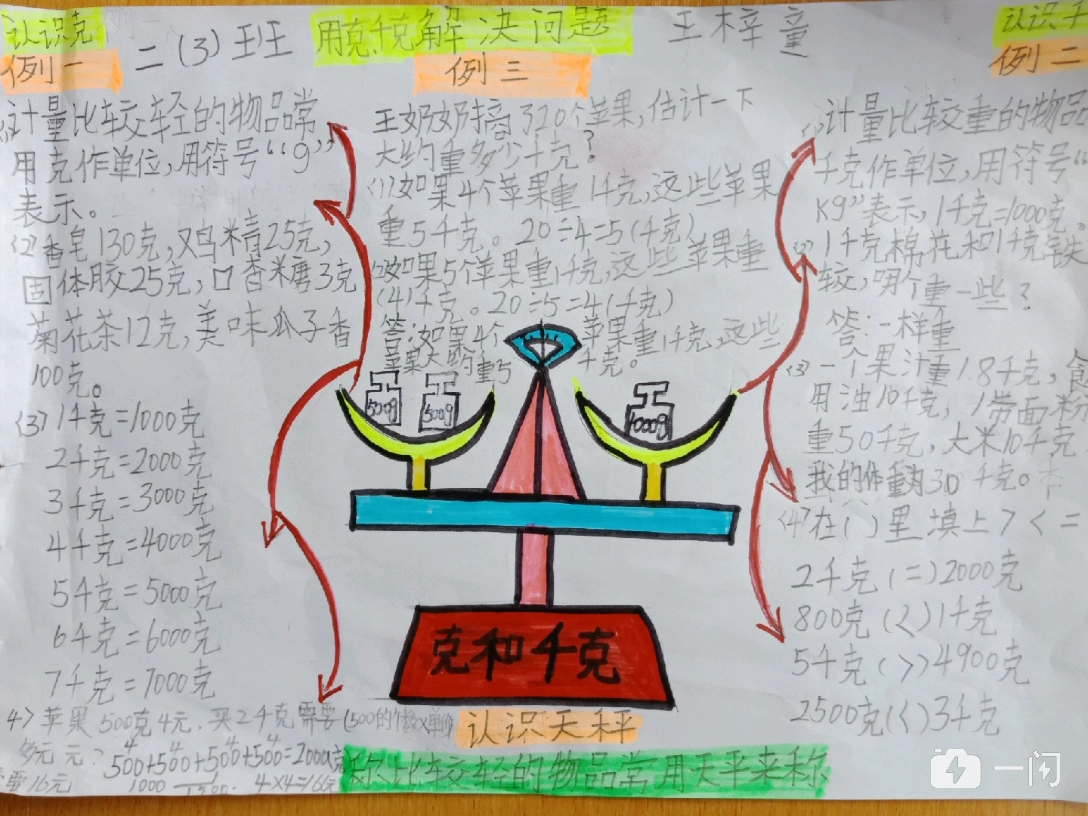 认识克
例一
二(3)班
用克千克解决问题
例三
王梓童
例二
计量比较轻的物品常
用克作单位,用符号“g”
表示。
(2)香皂130克,鸡精25克,
固体胶25克,口香糖3克
菊花茶12克,美味瓜子香
100克。
(3)1千克=1000克
2千克=2000克
3千克=3000克
4千克=4000克
5千克=5000克
6千克=6000克
7千克=7000克
4)苹果500克4元.买2千克需要
多元元?500+500+500+500=2000克
4 4 4 4
1000
需16元
4×4=16元
王奶奶摘320个苹果,估计一下
大约重多少千克?
(1)如果4个苹果重1千克,这些苹果
重5千克。20÷4=5(千克)
如果5个苹果重1千克,这些苹果重
(4)千克。20÷5=4(千克)
答:如果4个苹果重1千克,这些
苹果大约重5千克。
500g
500g
1000g
克和千克
认识天秤
称比较轻的物品常用天平来称
计量比较重的物品
千克作单位,用符号“
Kg”表示,1千克=1000克
1千克棉花和1千克铁
较,哪个重一些?
答:一样重
(3)一个果汁重1.8千克,食
用油10千克,1带面粉
重50千克,大米10千克
我的体重为30千克。
(4)在( )里填上><=
2千克(=)2000克
800克(<)1千克
5千克(>)4900克
2500克(<)3千克
一闪